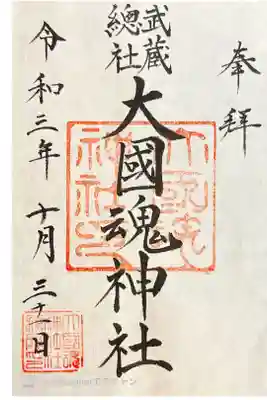 奉拝
武蔵
總社
大國魂神社
令和三年 十月 三十一日